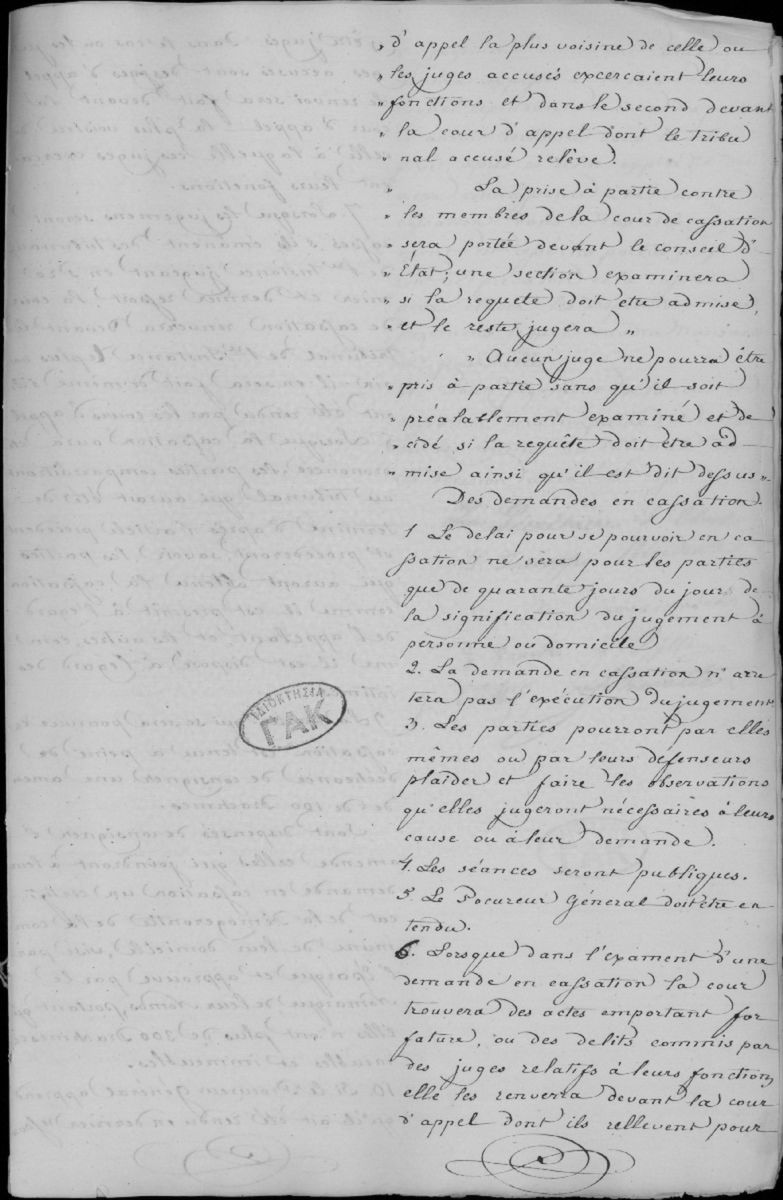 „ d'appel la plus voisine de celle ou
„ les juges accusés excercaient leurs
„ fonctions et dans le second devant
„ la cour d'appel dont le tribu
„ nal accusé relève.
„ La prise à partie contre
„ les membres de la cour de cassation
„ sera portée devant le conseil d'-
„ État; une section examinera
„ si la requête doit etre admise,
„ et le reste jugera „
„ Aucun juge ne pourra être
„ pris à partie sans qu'il soit
„ préalablement examiné et dé
„ cidé si la requête doit être ad-
„ mise ainsi qu'il est dit dessus „.
Des demandes en cassation.
1 Le delai pour se pourvoir en ca
ssation ne sera pour les parties
que de quarante jours du jour de
la signification du jugement à
personne ou domicile
2. La demande en cassation n'arre
tera pas l'exécution du jugement
3. Les parties pourront par elles
mêmes ou par leurs défenseurs
plaider et faire les observations
qu'elles jugeront nécessaires à leurs
cause ou à leur demande.
4. Les séances seront publiques.
5. Le Pocureur Général doit etre en
tendu.
6. Lorsque dans l'exament d'une
demande en cassation la cour
trouvera des actes emportant for
fature, ou des delits commis par
des juges relatifs à leurs fonctions
elle les renverra devant la cour
d'appel dont ils rellevent pour
ΙΔΙΟΚΤΗΣΙΑ
ΓΑΚ